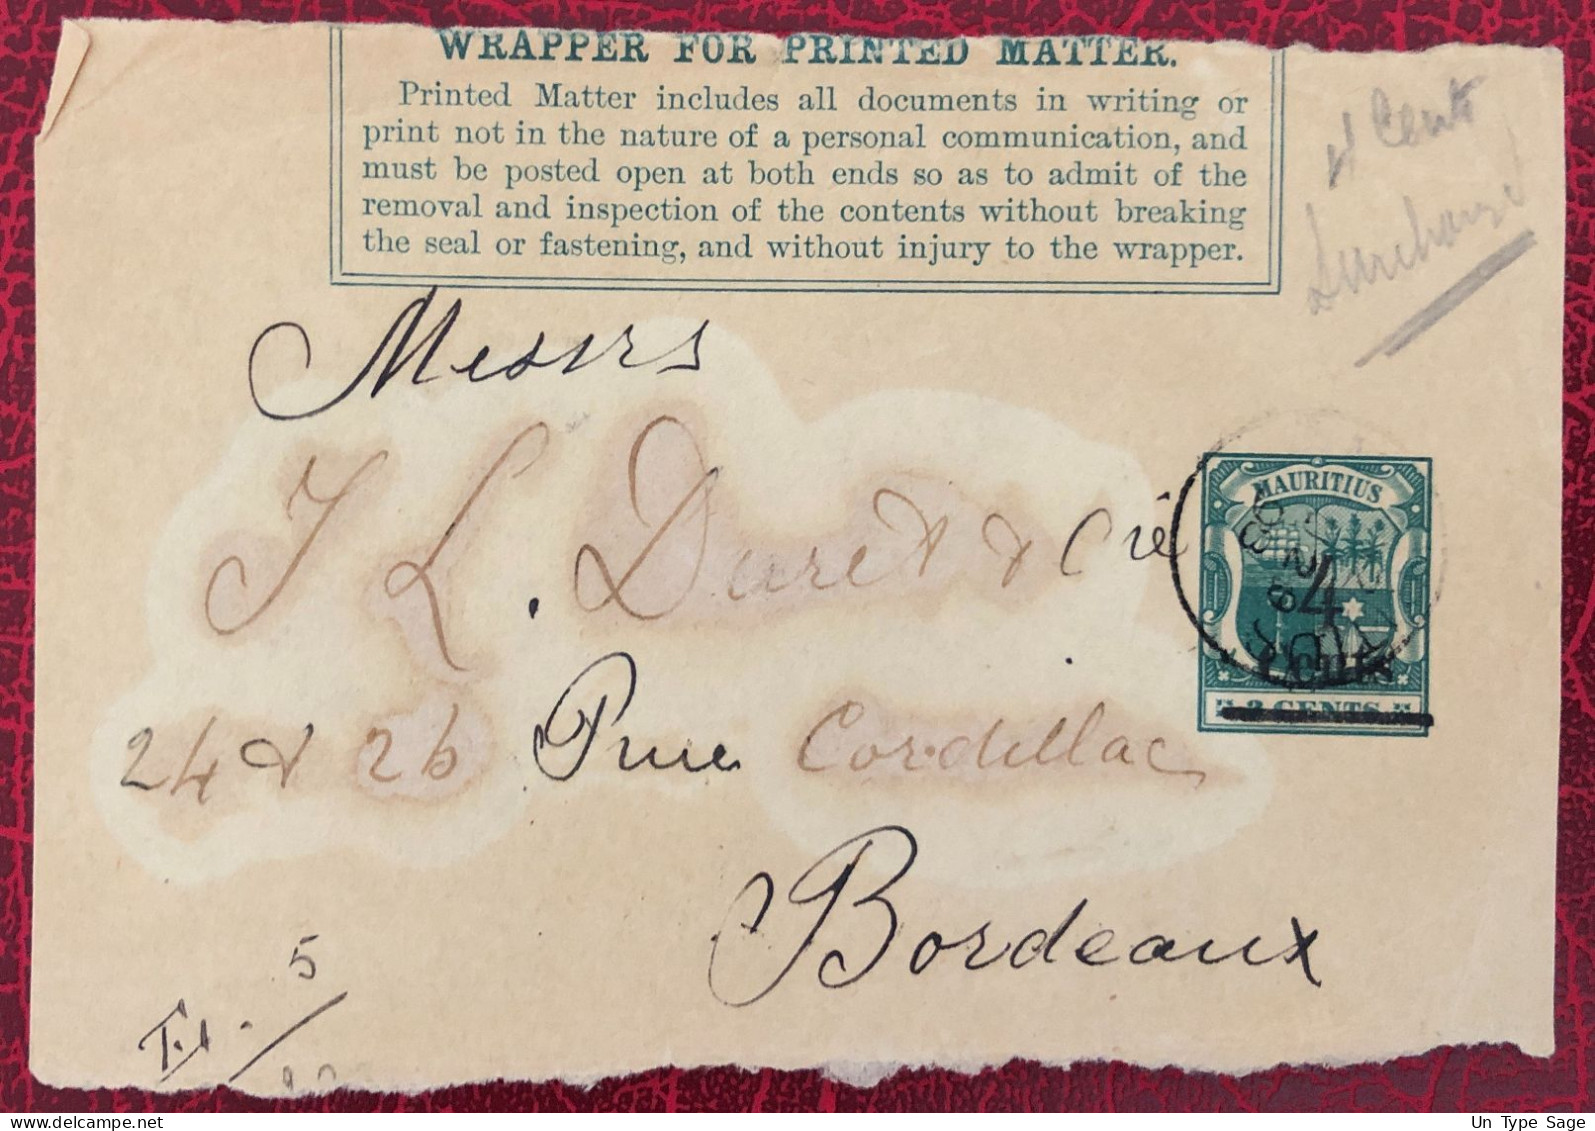 WRAPPER FOR PRINTED MATTER.
Printed Matter includes all documents in writing or
print not in the nature of a personal communication, and
must be posted open at both ends so as to admit of the
removal and inspection of the contents without breaking
the seal or fastening, and without injury to the wrapper.
4 Cents
Surcharge
Messrs
J L. Duret & Cie
24 & 26 Rue Cordillac
Bordeaux
MAURITIUS
4
Cents
3 CENTS
5
Un Type Sage
delcampe.net